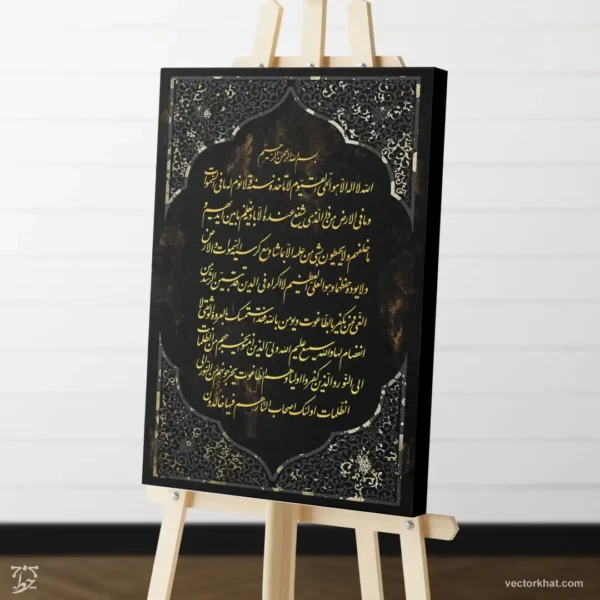 بسم الله الرحمن الرحیم
الله لا اله الا هو الحی القیوم لا تاخذه سنة و لا نوم له ما فی السموات
و ما فی الارض من ذا الذی یشفع عنده الا باذنه یعلم ما بین ایدیهم و
ما خلفهم و لا یحیطون بشی من علمه الا بما شا وسع کرسیه السموات و الارض
و لا یوده حفظهما و هو العلی العظیم لا اکراه فی الدین قد تبین الرشد من
الغی فمن یکفر بالطاغوت و یومن بالله فقد استمسک بالعروة الوثقی لا
انفصام لها و الله سمیع علیم الله ولی الذین آمنوا یخرجهم من الظلمات
الی النور و الذین کفروا اولیاوهم الطاغوت یخرجونهم من النور الی
الظلمات اولئک اصحاب النار هم فیها خالدون
خط
vectorkhat.com